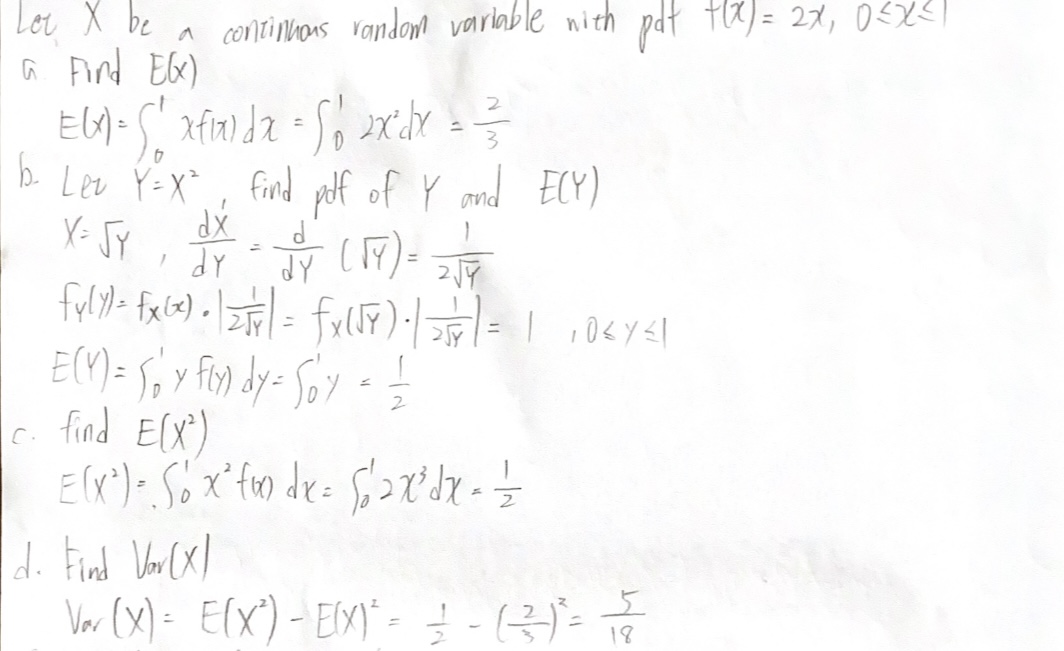 Let X be a continuous random variable with pdf f(x) = 2x, 0≤x≤1
a. Find E(x)
E(X) = ∫₀¹ xf(x) dx = ∫₀¹ 2x²dx = 2/3
b. Let Y=X², find pdf of Y and E(Y)
X=√Y, dX/dY = d/dY (√Y) = 1/(2√Y)
fY(y) = fX(x) · |1/(2√Y)| = fX(√Y) · |1/(2√Y)| = 1, 0≤y≤1
E(Y) = ∫₀¹ y f(y) dy = ∫₀¹ y = 1/2
c. find E(X²)
E(X²) = ∫₀¹ x² f(x) dx = ∫₀¹ 2x³dx = 1/2
d. Find Var(X)
Var(X) = E(X²) - E(X)² = 1/2 - (2/3)² = 5/18